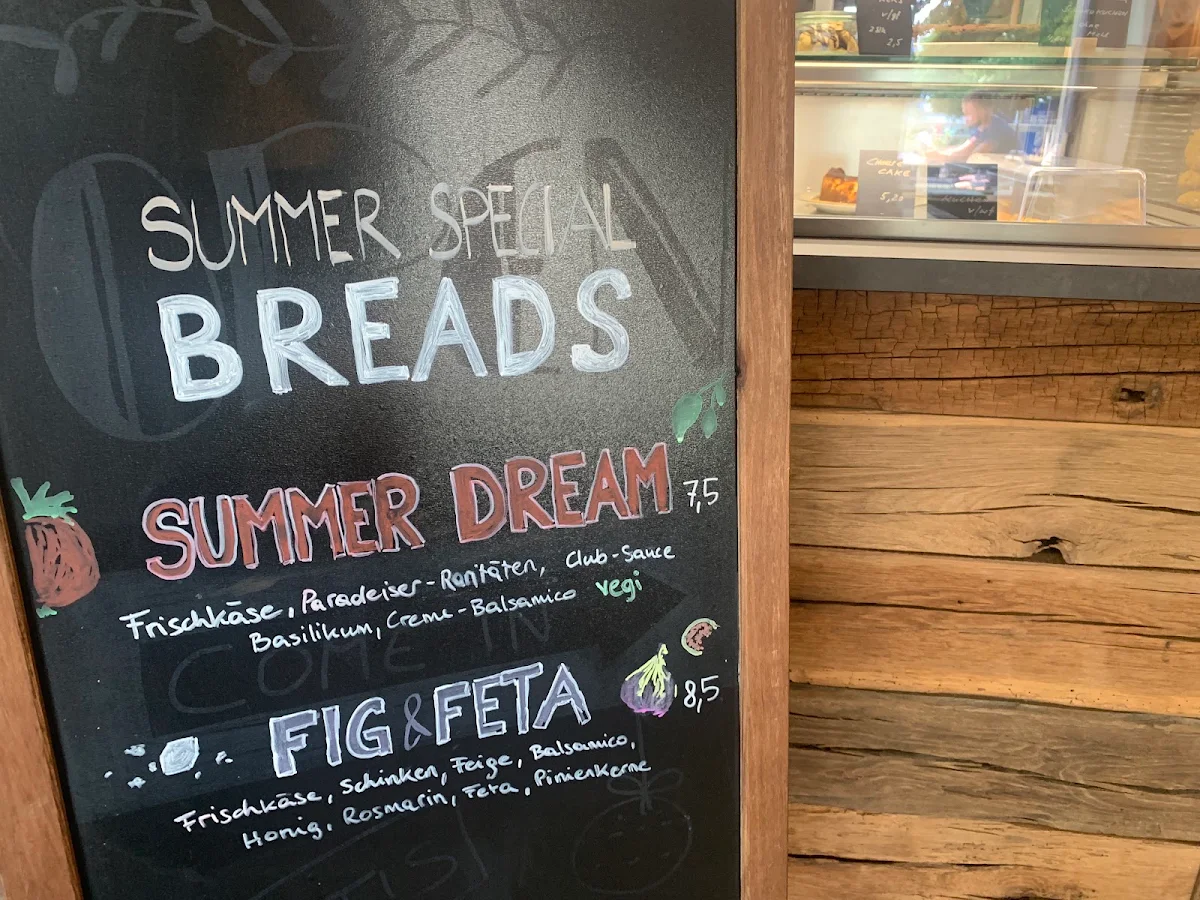 SUMMER SPECIAL
BREADS
SUMMER DREAM 7,5
Frischkäse, Paradeiser-Raritäten, Club-Sauce
Basilikum, Creme-Balsamico vegi
COME IN
FIG & FETA 8,5
Frischkäse, Schinken, Feige, Balsamico,
Honig, Rosmarin, Feta, Pinienkerne
CAKE
5,20
2,5